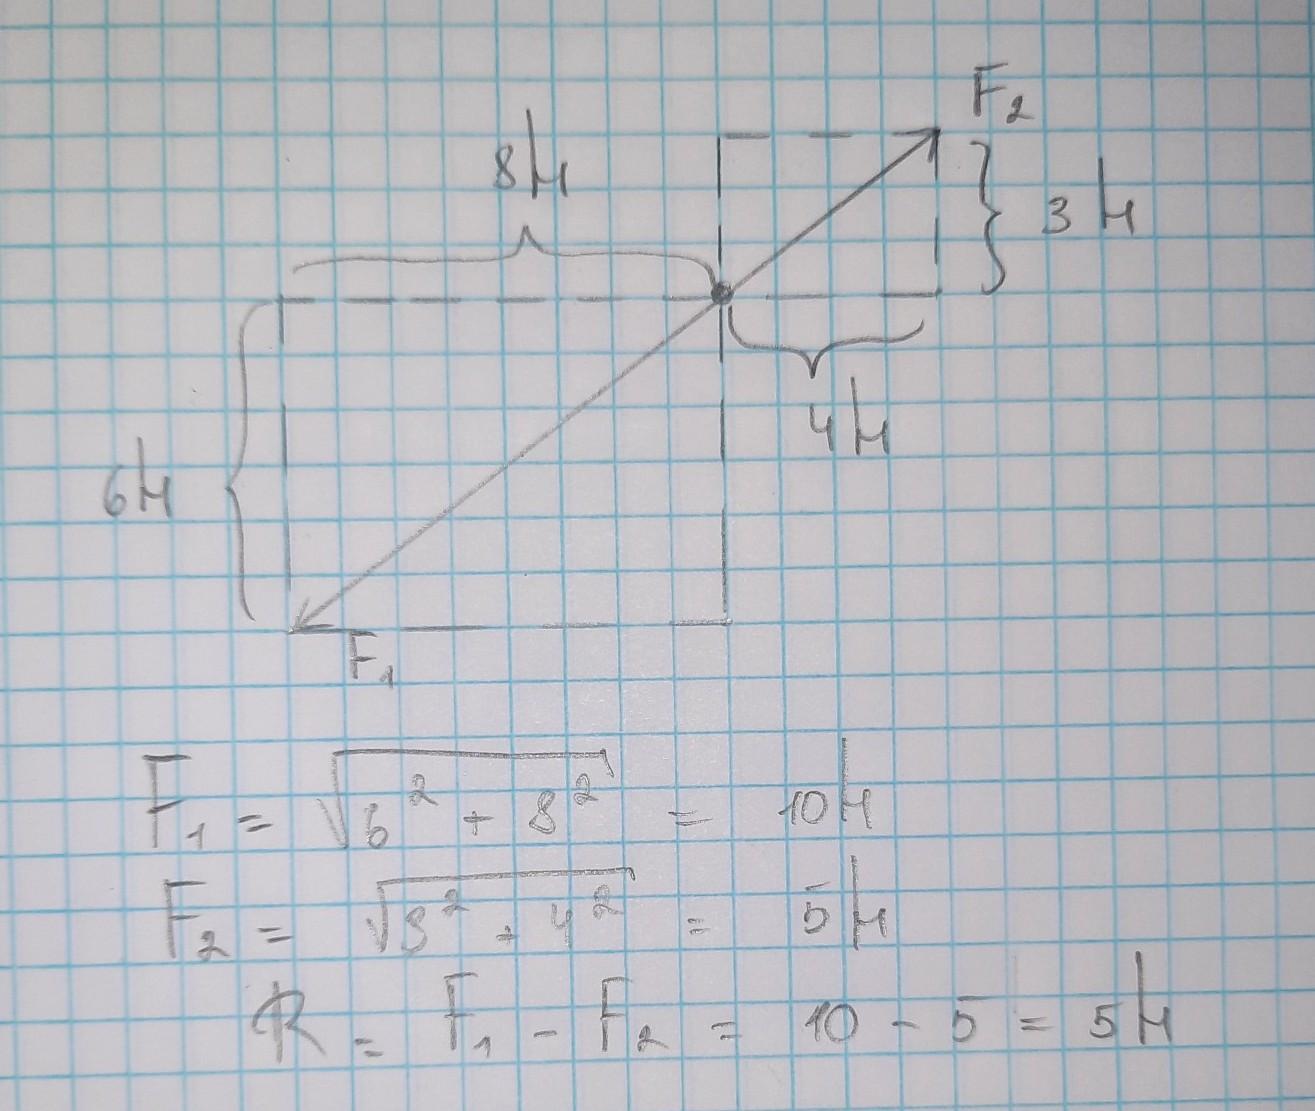 F₂
8Н
3Н
4Н
6Н
F₁
F₁ = √6² + 8² = 10Н
F₂ = √3² + 4² = 5Н
R = F₁ - F₂ = 10 - 5 = 5Н